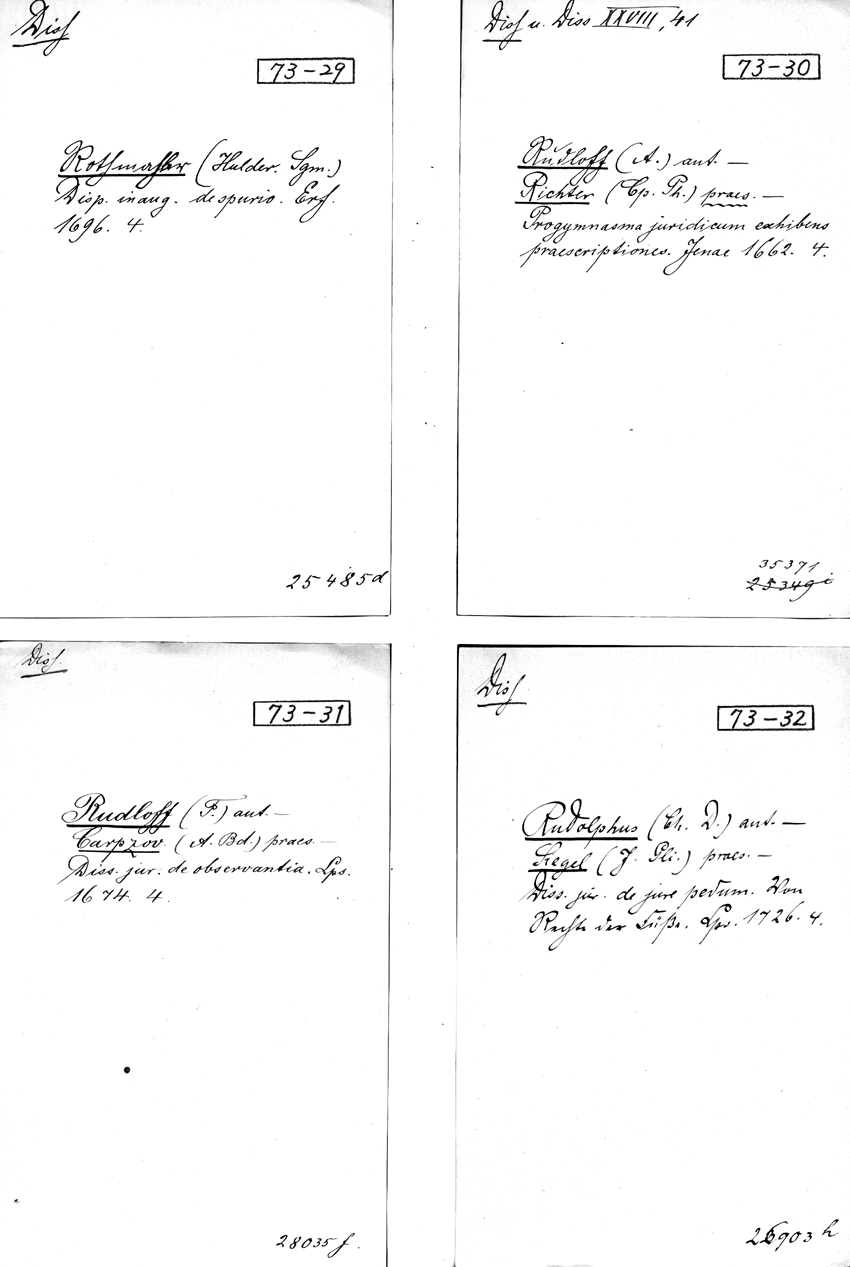 Diss
73-29
Rothmahler (Hulder. Sgm.)
Disp. inaug. de spurio. Erf.
1696. 4.
25485d
Diss u. Diss XXVIII, 41
73-30
Rudloff (A.) aut. —
Richter (Cp. Ph.) praes. —
Progymnasma juridicum exhibens
praescriptiones. Jenae 1662. 4.
35371
25349i
Diss.
73-31
Rudloff (F.) aut. —
Carpzov. (A. Bd.) praes. —
Diss. jur. de observantia. Lps.
1674. 4.
28035f.
Diss
73-32
Rudolphus (Ch. D.) aut. —
Siegel (J. Gli.) praes. —
Diss. jur. de jure pedum. Von
Rechte der Füße. Lps. 1726. 4.
26903h